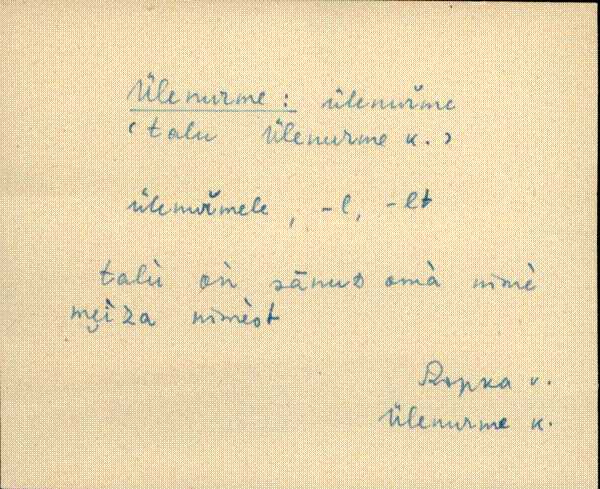 Ülenurme : ülenuřme
(talu Ülenurme k.)
ülenuřmele, -l, -lt
talù òn sānuᴅ omà nimè
mẹiza nimèst
Ropka v.
Ülenurme k.